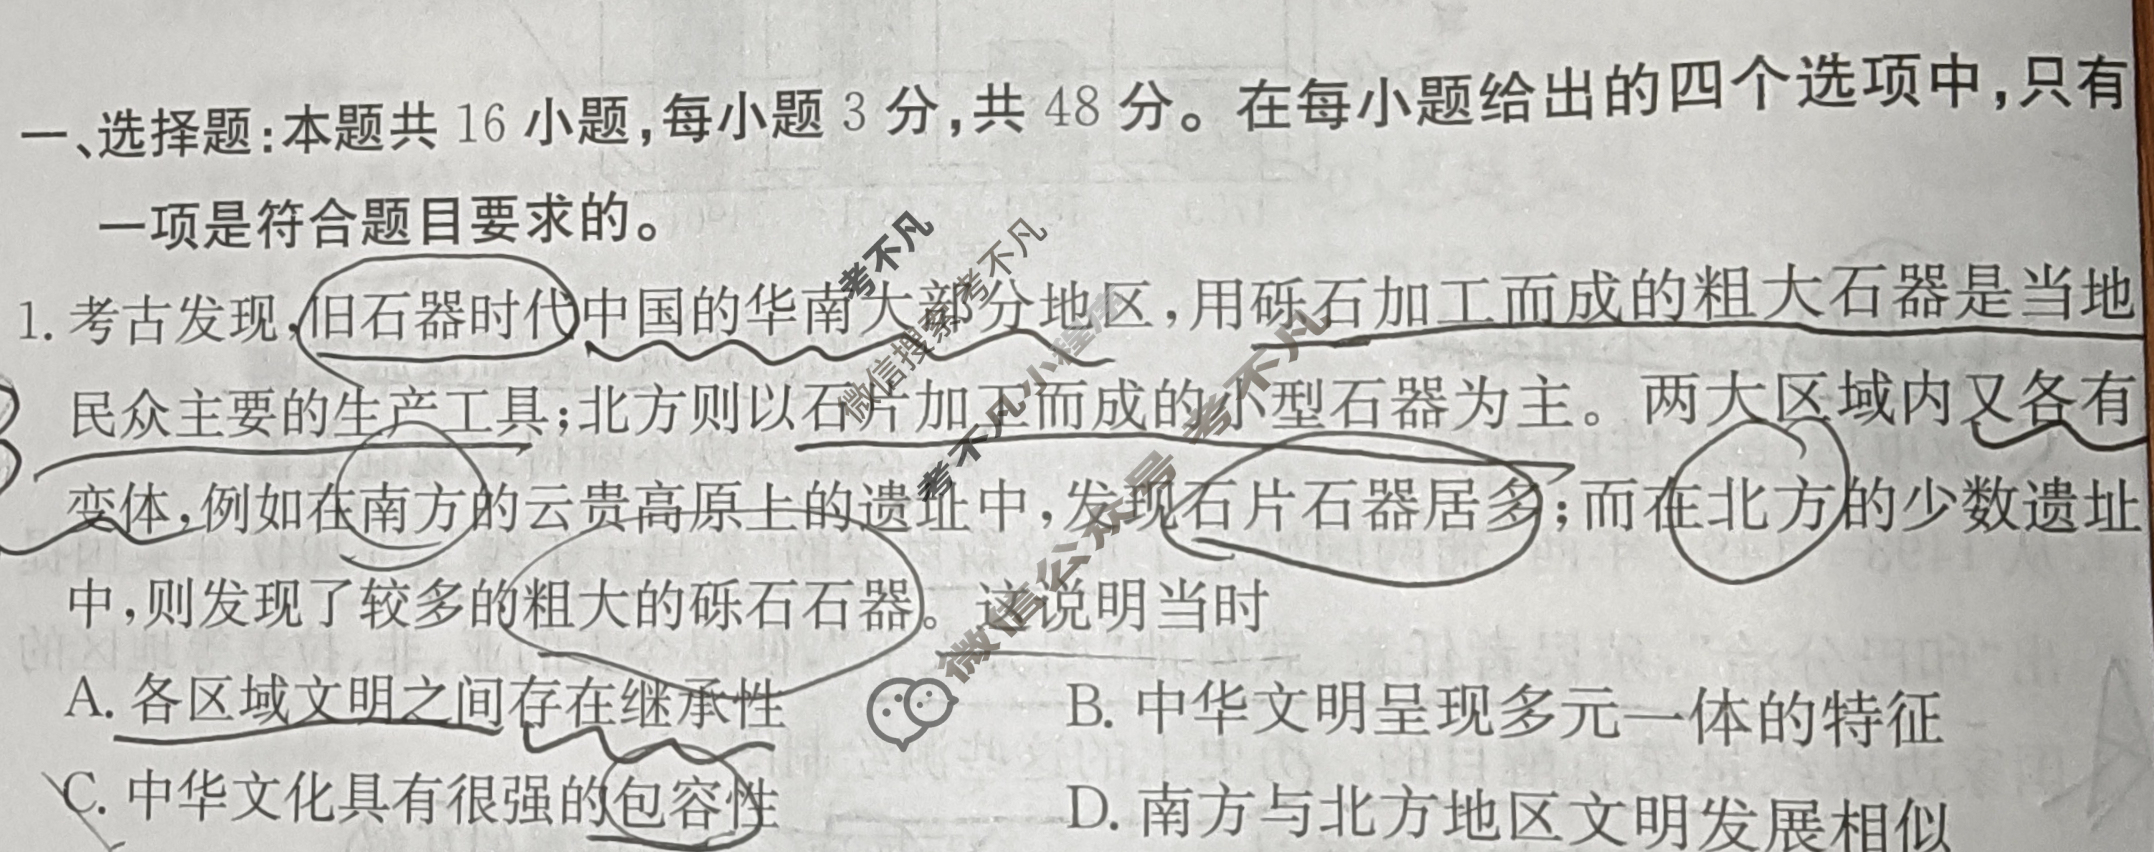 一、选择题:本题共 16 小题,每小题 3 分,共 48 分。在每小题给出的四个选项中,只有
一项是符合题目要求的。
1. 考古发现,旧石器时代中国的华南大部分地区,用砾石加工而成的粗大石器是当地
民众主要的生产工具;北方则以石片加工而成的小型石器为主。两大区域内又各有
变体,例如在南方的云贵高原上的遗址中,发现石片石器居多;而在北方的少数遗址
中,则发现了较多的粗大的砾石石器。这说明当时
A. 各区域文明之间存在继承性
B. 中华文明呈现多元一体的特征
C. 中华文化具有很强的包容性
D. 南方与北方地区文明发展相似
考不凡
考不凡
微信搜索
小程序
考不凡
考不凡
微信公众号